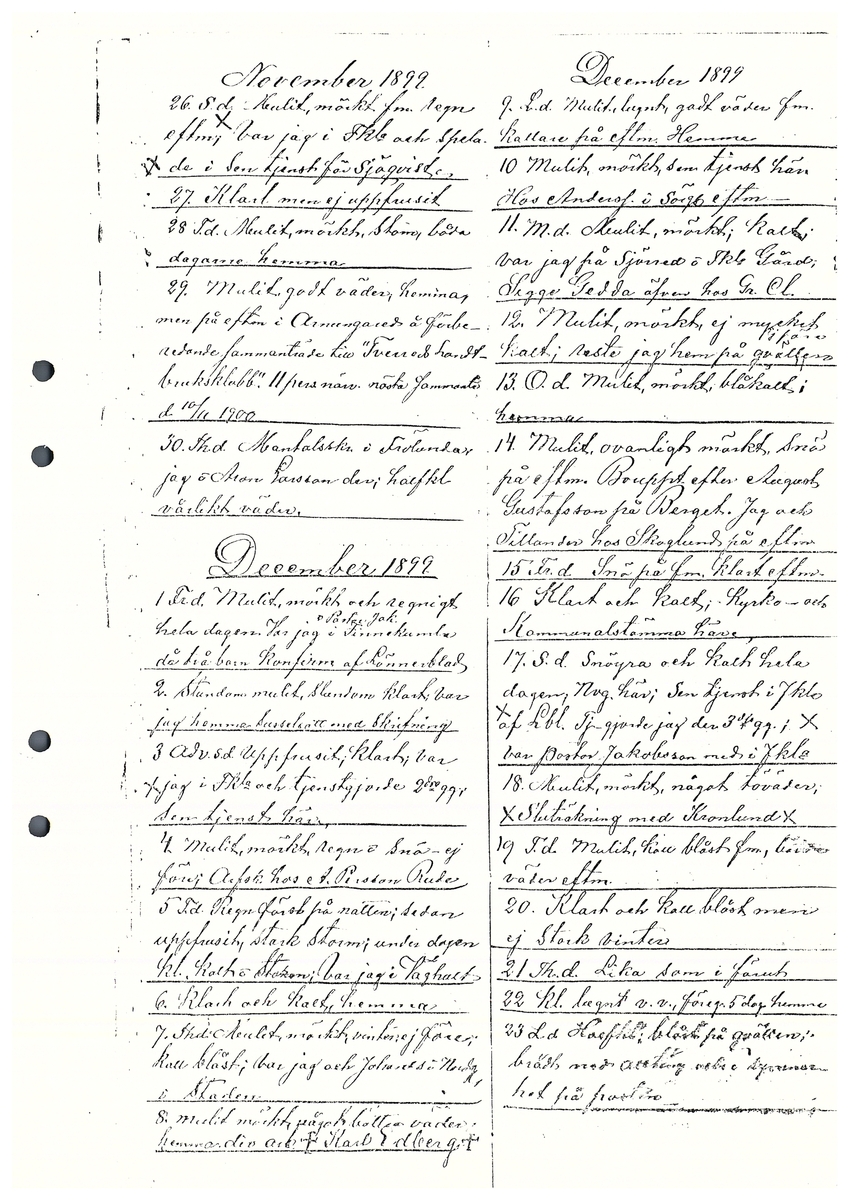 November 1899
26. S.d. Mulit, mörkt fm. regn
eftm; var jag i Fkb och spela-
de i Sen tjenst för Sjöqvist.
27. Klart men ej uppfrusit
28 T.d. Mulit, mörkt, Storm, båda
dagarne hemma
29. Mulit, godt väder; hemma,
men på eftm i Armungared å förbe-
redande sammanträde till "Tverreds Landt-
bruksklubb". 11 pers närv. nästa Sammantr.
d. 10/11 1900
30. Th.d. Mantalsskr. i Frölunda,
jag o Aron Larsson der; halfkl
vårlikt väder.
December 1899
1 Fr.d. Mulit, mörkt och regnigt
o Pastor Jak.
hela dagen. Var jag i Finnekumla
då två barn Konfirm af Lönnerblad
2. Stundom mulit, stundom klart; var
jag hemma sysselsatt med Skrifning
3 Adv.s.d. Uppfrusit; klart; var
jag i Fkb och tjenstgjorde 2dra gg;
sen tjenst här.
4. Mulit, mörkt, regn o Snö - ej
före; Arfsk. hos A. Persson Rude
5 T.d. Regn först på natten; sedan
uppfrusit, stark Storm; under dagen
kl. Kalt o Storm; Var jag i Vaghult
6. Klart och kalt, hemma
7. Th.d. Mulit, mörkt, vinter, ej före;
kall blåst; var jag och Johannes i
i Staden
8. mulit mörkt, något bättre väder;
hemma div arb † Karl Edberg †
December 1899
9. L.d. Mulit, lugnt, godt väder fm.
Kallare på eftm. Hemma
10 Mulit, mörkt, sen tjenst här
Hos Anderss. i eftm
11. M.d. Mulit, mörkt; kalt;
var jag på Sjörred o Fkb Gård;
Sigge Gedda äfven hos Gr. Cl.
12. Mulit, mörkt, ej mycket
kalt; reste jag hem på qvällen
13. O.d. Mulit, mörkt; blåkalt;
hemma
14. Mulit, ovanligt mörkt, Snö
på eftm. Bouppt efter August
Gustafsson på Berget. Jag och
Tillander hos Skoglund på eftm
15 Fr.d. Snö på fm. klart eftm.
16 Klart och kalt; Kyrko- och
Kommunalstämma här
17. S.d. Snöyra och kalt hela
dagen; Nvg. här; Sen tjenst i Fkb
af Lbl. Tj. gjorde jag der 3dje gg.;
var pastor Jakobsson med i Fkb
18. Mulit, mörkt, något töväder;
Sluträkning med Kronlund
19 T.d. Mulit, kall blåst fm, bättre
väder eftm.
20. Klart och kall blåst men
ej Stark vinter
21 Th.d. Lika som i förut
22 kl. lugnt v.v., föreg. 5 dag hemma
23 L.d Halfkl; blåst på qvällen;
brådt med
het på posten